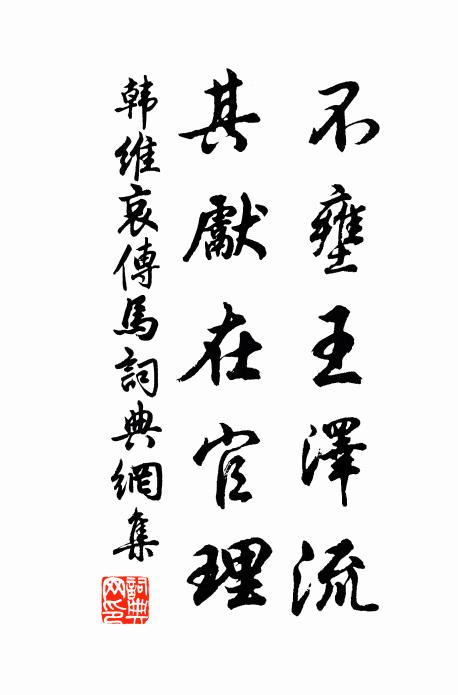 不壅王澤流
其獻在官理
韩維哀傳馬詞典網集
詞典網印